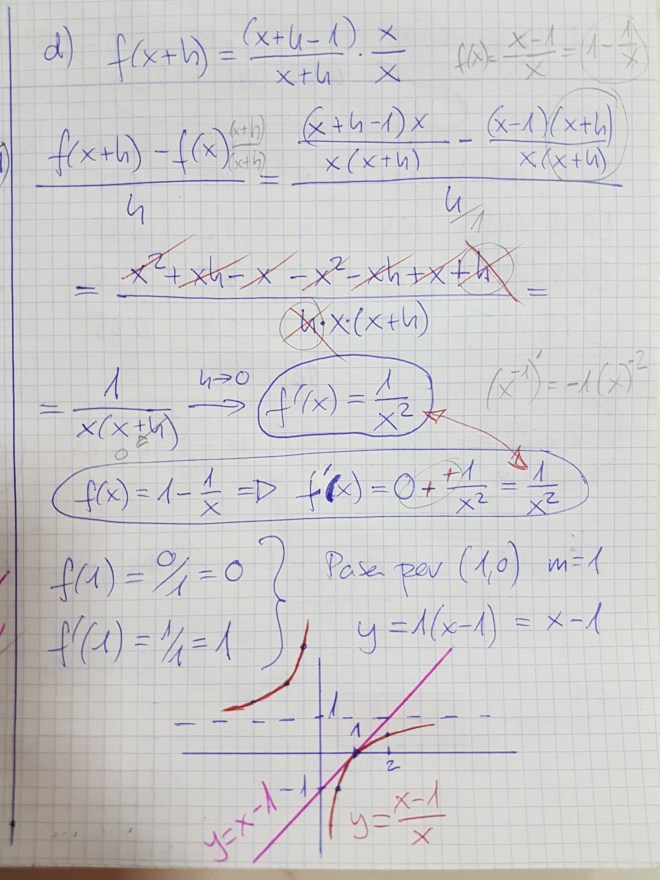 d) f(x+h) = (x+h-1)/(x+h) · x/x f(x) = (x-1)/x = 1 - 1/x
(f(x+h) - f(x) (x+h)/(x+h))/h = ((x+h-1)x/(x(x+h)) - (x-1)(x+h)/(x(x+h)))/(h/1)
= (x² + xh - x - x² - xh + x + h)/(h·x·(x+h)) =
= 1/(x(x+h)) h→0 → f'(x) = 1/x² (x⁻¹)' = -1(x)⁻²
0
f(x) = 1 - 1/x ⇒ f'(x) = 0 + +1/x² = 1/x²
f(1) = 0/1 = 0 } Pasa per (1,0) m=1
f'(1) = 1/1 = 1 y = 1(x-1) = x-1
1
1
2
-1
y=x-1
y = (x-1)/x